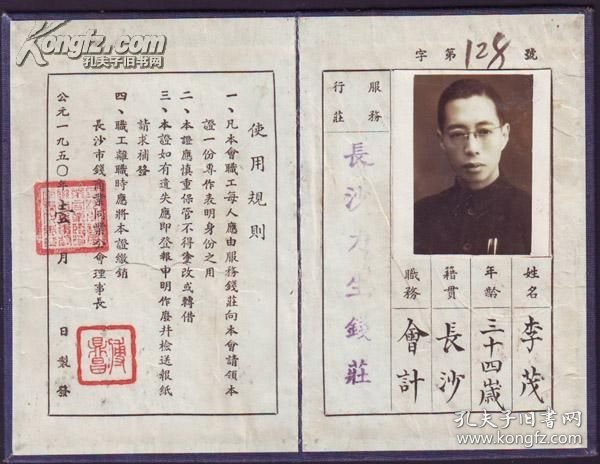 Kongfz.com
孔夫子旧书网
字第128號
姓名 李茂
年齡 三十四歲
籍貫 長沙
職務 會計
服務行莊
長沙力生錢莊
使用規則
一、凡本會職工每人應由服務錢莊向本會請領本
證一份專作表明身份之用
二、本證應慎重保管不得塗改或轉借
三、本證如有遺失應即登報申明作廢并檢送報紙
請求補發
四、職工離職時應將本證繳銷
長沙市錢商業同業公會理事長
公元一九五〇年 月 日製發
孔夫子旧书网
www.kongfz.com